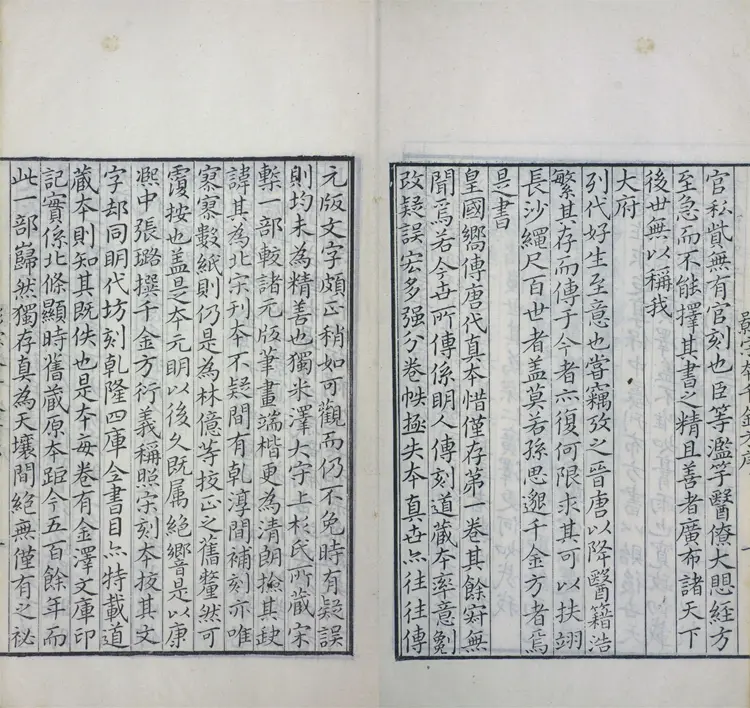 官私貲無有官刻也臣等濫竽醫僚大懼経方
至急而不能擇其書之精且善者廣布諸天下
後世無以稱我
大府
列代好生至意也嘗竊攷之晉唐以降醫籍浩
繁其存而傳于今者亦復何限求其可以扶翊
長沙繩尺百世者盖莫若孫思邈千金方者焉
是書
皇國嚮傳唐代真本惜僅存第一卷其餘寂無
聞焉若今世所傳係明人傳刻道藏本率意劖
改疑誤宏多强分卷帙極失本真世亦往往傳
元版文字頗正稍如可觀而仍不免時有疑誤
則均未為精善也獨米澤大守上杉氏所藏宋
槧一部較諸元版筆畫端楷更為清朗撿其缺
諱其為北宋刊本不疑間有乾淳間補刻亦唯
寥寥數紙則仍是為林億等挍正之舊釐然可
覆按也盖是本元明以後久既属絶響是以康
熙中張璐撰千金方衍義稱照宋刻本挍其文
字却同明代坊刻乾隆四庫全書目亦特載道
藏本則知其既佚也是本每卷有金澤文庫印
記實係北條顯時舊藏原本距今五百餘年而
此一部巋然獨存真為天壤間絶無僅有之祕